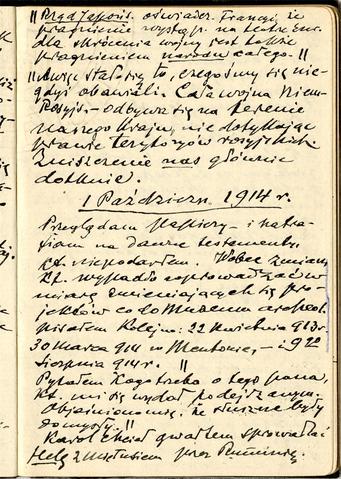 "Rząd Japońs. oświadcz. Francyi, że
pragnienie wystąp. na teatrze eur.
dla skrócenia wojny jest także
pragnieniem narodu całego."
"A więc stało się to, czegośmy się nie-
gdyś obawiali. Cała wojna Niem-
Rosyjs. – odbywa się na terenie
naszego kraju, nie dotykając
prawie terytoryów rosyjskich
Zniszczenie nas głównie
dotknie.
1 Paździer. 1914 r.
Przeglądam papiery – i natra-
fiam na dawne testamenty
kt. niepodarłem. Wobec zmian,
kt. wypadło wprowadzać w
miarę zmieniających się pro-
jektów co do Muzeum archeol.
pisałem kolejno: 22 kwietnia 913 r.
30 marca 914 w Mentonie, – i 922
Sierpnia 914 r. "
Pytałem kogo trzeba o tego pana,
kt. mi się wydał podejrzanym.
Objaśniono mię, że słuszne były
domysły."
Karol chciał gwałtem sprowadzić
Helę z przez Rumunię.